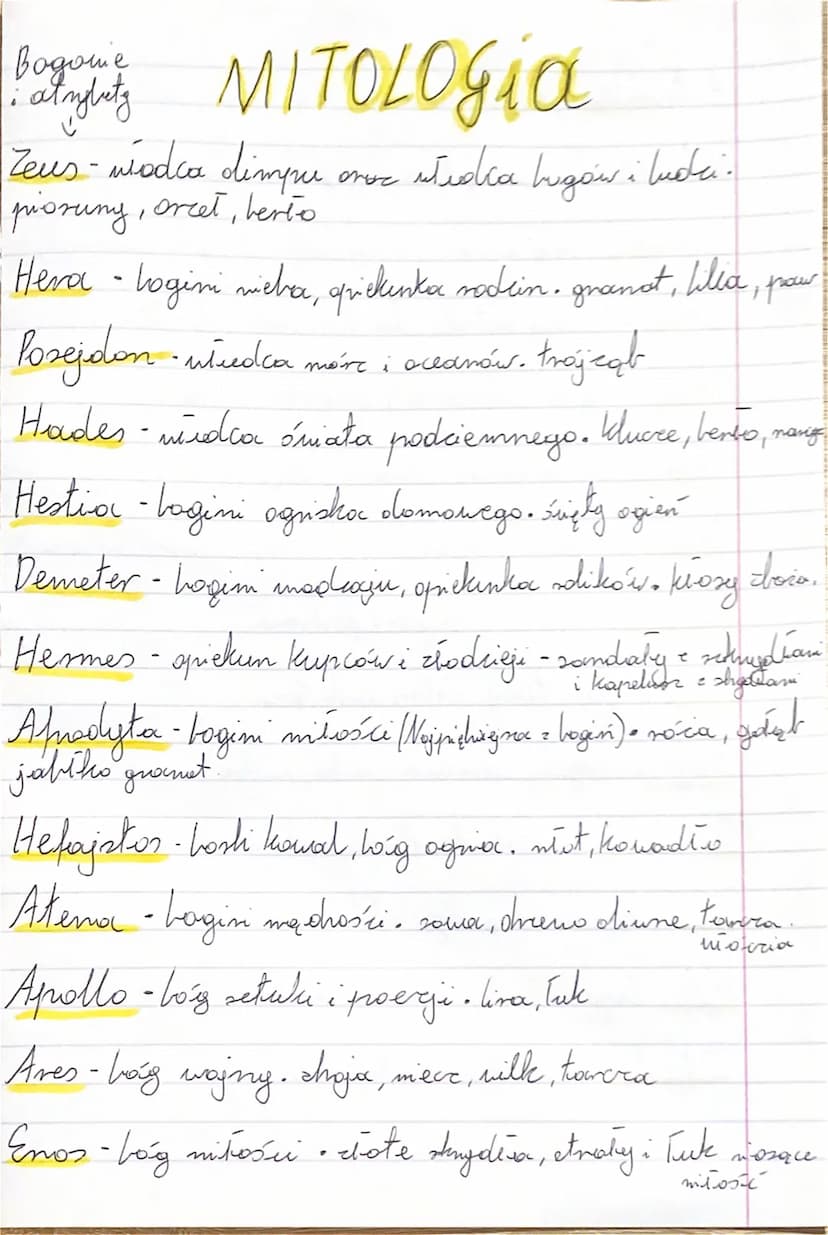 MITOLOGIA
Bogowie
i atrybuty
Zeus - władca olimpu oraz władca bogów i ludzi.
pioruny, orzeł, berło
Hera - bogini nieba, opiekunka rodzin. granat, lilia, paw
Posejdon - władca mórz i oceanów. trójząb
Hades - władca świata podziemnego. klucze, berło,
Hestia - bogini ogniska domowego. święty ogień
Demeter - bogini urodzaju, opiekunka rolików. kłosy zboża.
Hermes - opiekun kupców i złodzieji - sandały z skrzydłami
i kapelusz z skrzydłami
Afrodyta - bogini miłości (Najpiękniejsza z bogiń). róża, gołąb
jabłko granat.
Hefajstos - boski kowal, bóg ognia. młot, kowadło
Atena - bogini mądrości. sowa, drzewo oliwne, tarcza.
włócznia
Apollo - bóg sztuki i poezji. lira, łuk
Ares - bóg wojny. zbroja, miecz, wilk, tarcza
Eros - bóg miłości. złote skrzydła, strzały i łuk niosące
miłość